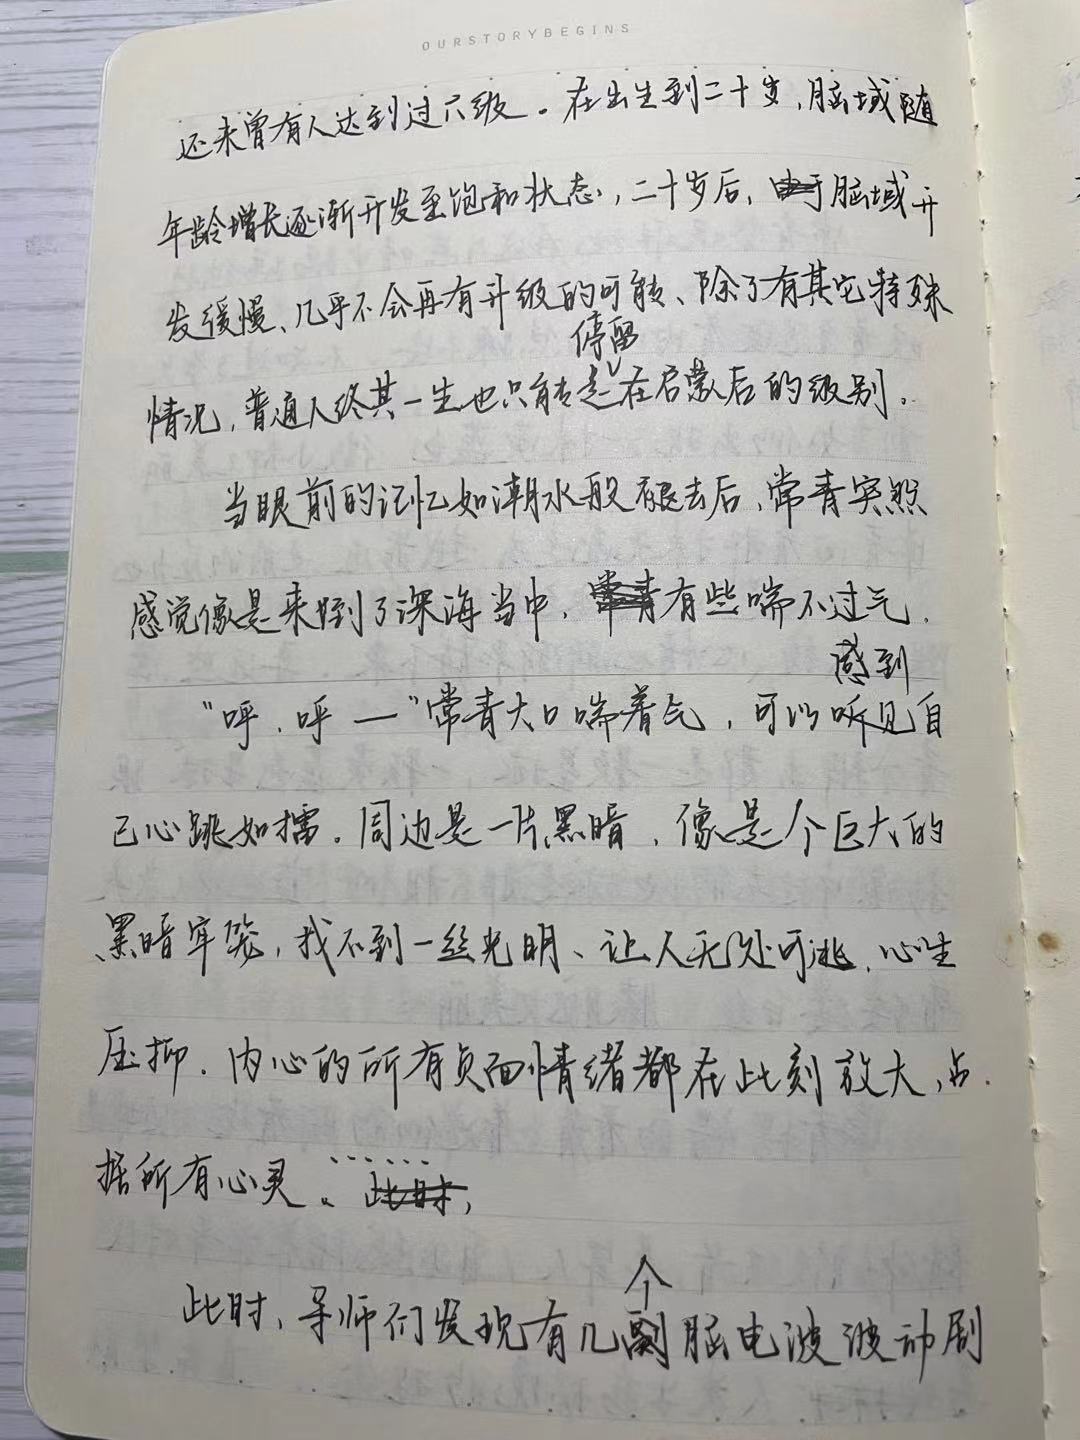 OURSTORYBEGINS
还未曾有人达到过六级。在出生到二十岁,脑域随
年龄增长逐渐开发至饱和状态,二十岁后,由于脑域开
发缓慢、几乎不会再有升级的可能、除了有其它特殊
停留
情况,普通人终其一生也只能在启蒙后的级别。
当眼前的记忆如潮水般褪去后,常青突然
感觉像是来到了深海当中,常青有些喘不过气.
感到
“呼.呼—”常青大口喘着气,可以听见自
己心跳如擂.周边是一片黑暗,像是个巨大的
黑暗牢笼,找不到一丝光明、让人无处可逃.心生
压抑.内心的所有负面情绪都在此刻放大,占.
据所有心灵。……此时,
个
此时,导师们发现有几副脑电波波动剧